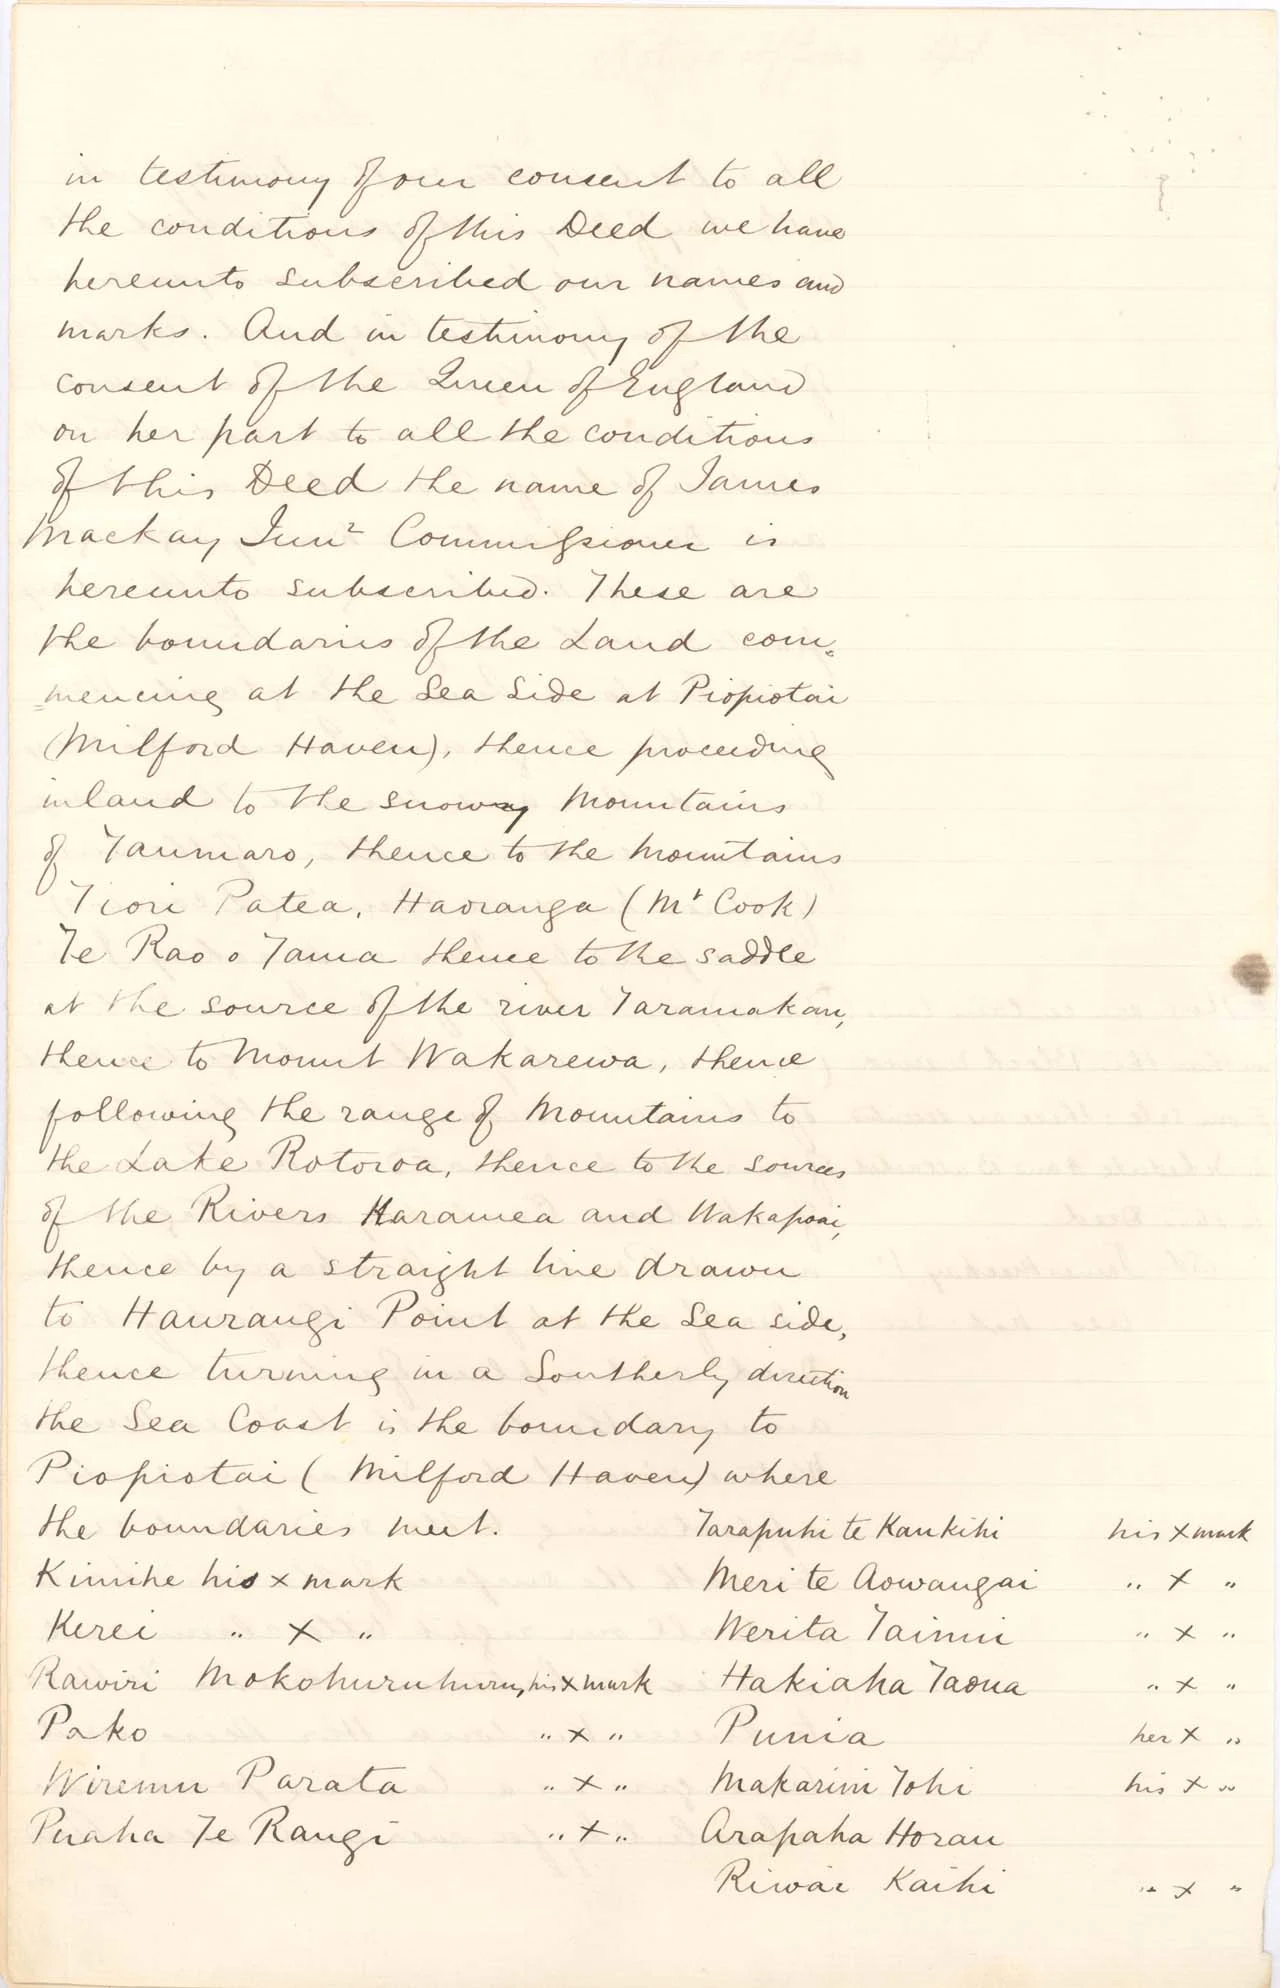 in testimony of our consent to all
the conditions of this Deed we have
hereunto subscribed our names and
marks. And in testimony of the
consent of the Queen of England
on her part to all the conditions
of this Deed the name of James
Mackay Junr Commissioner is
hereunto subscribed. These are
the boundaries of the Land com=
=mencing at the Sea Side at Piopiotai
(Milford Haven), thence proceeding
inland to the snowy Mountains
of Taumaro, thence to the Mountains
Tiori Patea, Haoranga (Mt Cook)
Te Rao o Tama thence to the saddle
at the source of the river Taramakau,
thence to Mount Wakarewa, thence
following the range of Mountains to
the Lake Rotoroa, thence to the sources
of the Rivers Karamea and Wakapoai,
thence by a straight line drawn
to Haurangi Point at the Sea side,
thence turning in a Southerly direction
the Sea Coast is the boundary to
Piopiotai (Milford Haven) where
the boundaries meet. Tarapuhi te Kaukihi his x mark
Kinihe his x mark Meri te Aowangai " x "
Kerei " x " Werita Tainui " x "
Rawiri Mokohuruhuru, his x mark Hakiaha Taona " x "
Pako " x " Punia her x "
Wiremu Parata " x " Makarini Tohi his x "
Puaha Te Rangi " x " Arapaha Horau
Riwai Kaihi " x "